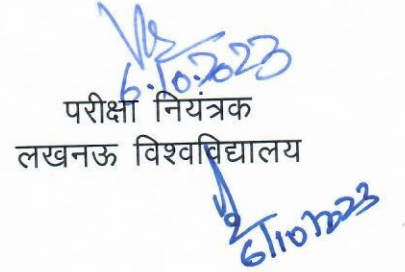 6.10.2023
परीक्षा नियंत्रक
लखनऊ विश्वविद्यालय
6/10/2023